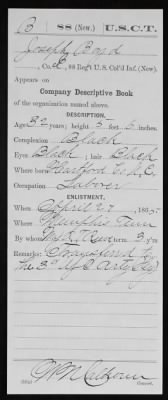 B 88 (New.) U.S.C.T.
Joseph Bond
Co. E, 88 Reg't U.S. Col'd Inf. (New).
Appears on
Company Descriptive Book
of the organization named above.
DESCRIPTION.
Age 32 years; height 5 feet 5 inches.
Complexion Black
Eyes Black; hair Black
Where born Hartford Co. N.C.
Occupation Laborer
ENLISTMENT.
When April 27, 186
Where Memphis Tenn
By whom term 3 y'rs
Remarks: Transferred to
the 3d U.S. Arty (Hy)
WM Calhoun
Copyist.